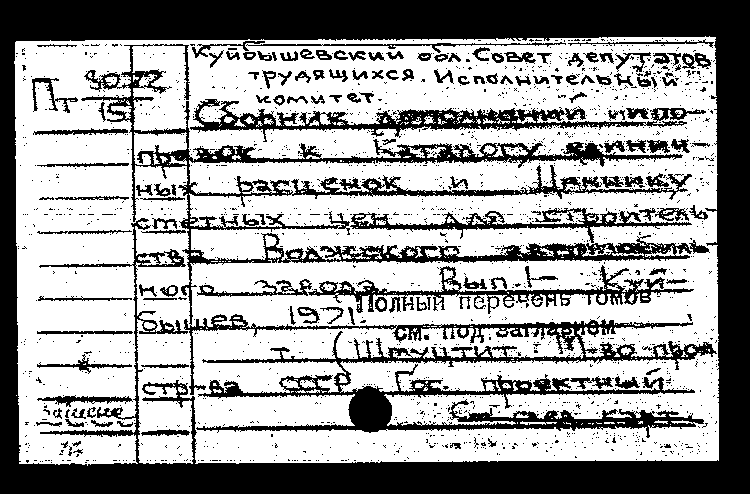 Куйбышевский обл. Совет депутатов
трудящихся. Исполнительный
комитет.
Пт 3022
(5)
Сборник дополнений и испо-
правок к Каталогу единич-
ных расценок и Ценнику
сметных цен для строитель-
ства Волжского автомобиль-
ного завода. Вып. 1- Куй-
бышев, 1971.
Полный перечень томов
см. под заглавием
т. (Штуцтит. М-во пром
стр-ва СССР Гос. проектный
См. след. карт.